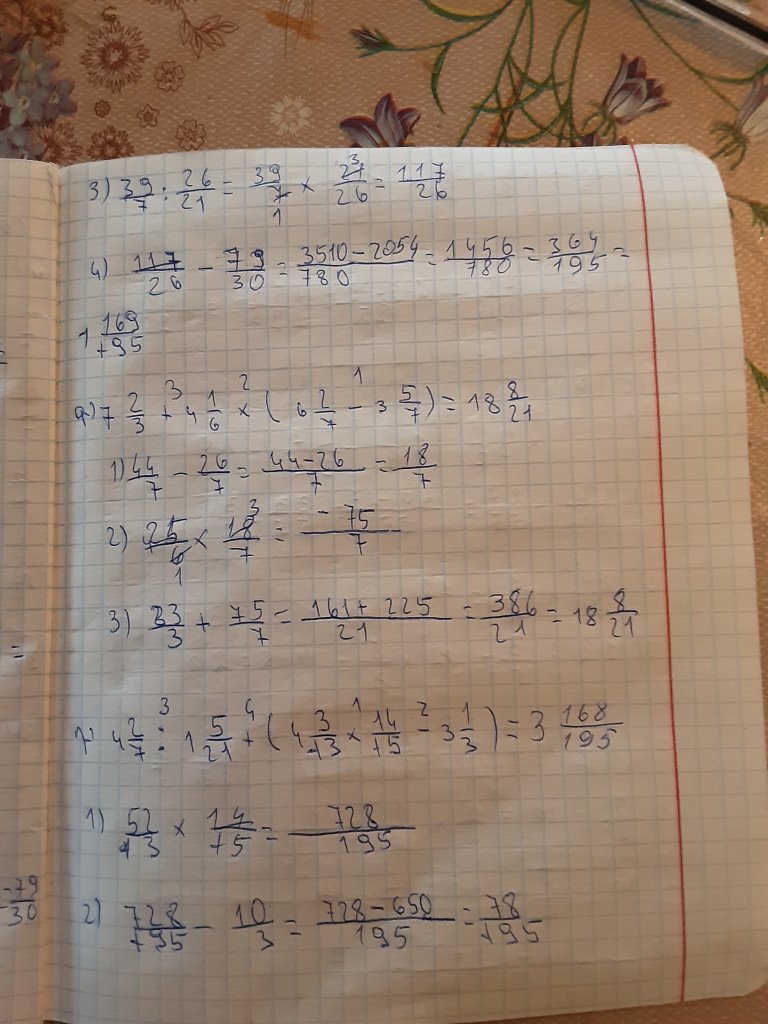 3) 39/7 : 26/21 = 39/7 1 × 21 3/26 = 117/26
4) 117/26 - 79/30 = 3510-2054/780 = 1456/780 = 364/195 =
1 169/195
7 2/3 + 3 4 1/6 × 2 ( 6 2/7 - 1 3 5/7 ) = 18 8/21
1) 44/7 - 26/7 = 44-26/7 = 18/7
2) 25/6 1 × 18 3/7 = - 75/7
3) 23/3 + 75/7 = 161+225/21 = 386/21 = 18 8/21
4 2/7 : 3 1 5/21 + 4 ( 4 3/13 × 1 14/15 - 2 3 1/3 ) = 3 168/195
1) 52/13 × 14/15 = 728/195
-79/30
2) 728/195 - 10/3 = 728-650/195 = 78/195
=